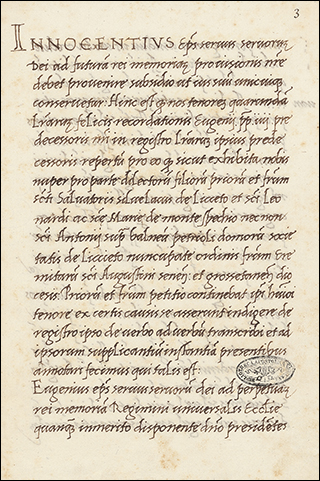 3
INNOCENTIVS Eps seruus seruorũ
Dei ad futurã rei memoriaz prouisionis nře
debet prouenire subsidio ut ius suũ unicuiq
conseruetur. Hinc est q nos tenores quarundã
lřarũz felicis recordationis Eugenij pp iiij pre
decessoris nři in registro lřarũz ipsius prede
cessoris reperti pro eo q sicut exhibita nobis
nuper pro parte dilectorũ filiorũ prioris et frũm
scti Saluatoris silue lacus de liceto et scti leo
nardi ac scte Marie de monte specchio necnon
scti Antonij sup balnea petrioli domorũ socie
tatis de liccieto nuncupate ordinis frũm Ere
mitarũ scti Augustini seneñ: et grossetaneñ dio
cesis. Prioris et frũm petitio continebat ipsi huiõi
tenore ex certis causis se asserant indigere de
registro ipso de verbo ad verbũ transcribi et ad
ipsorum supplicantiũ instantiã presentibus
annotari fecimus qui talis est:
Eugenius eps seruus seruorũ dei ad perpetuaz
rei memoriã Regimini uniuersalis Ecclie
quanq̃ immerito disponente dño presidẽtes